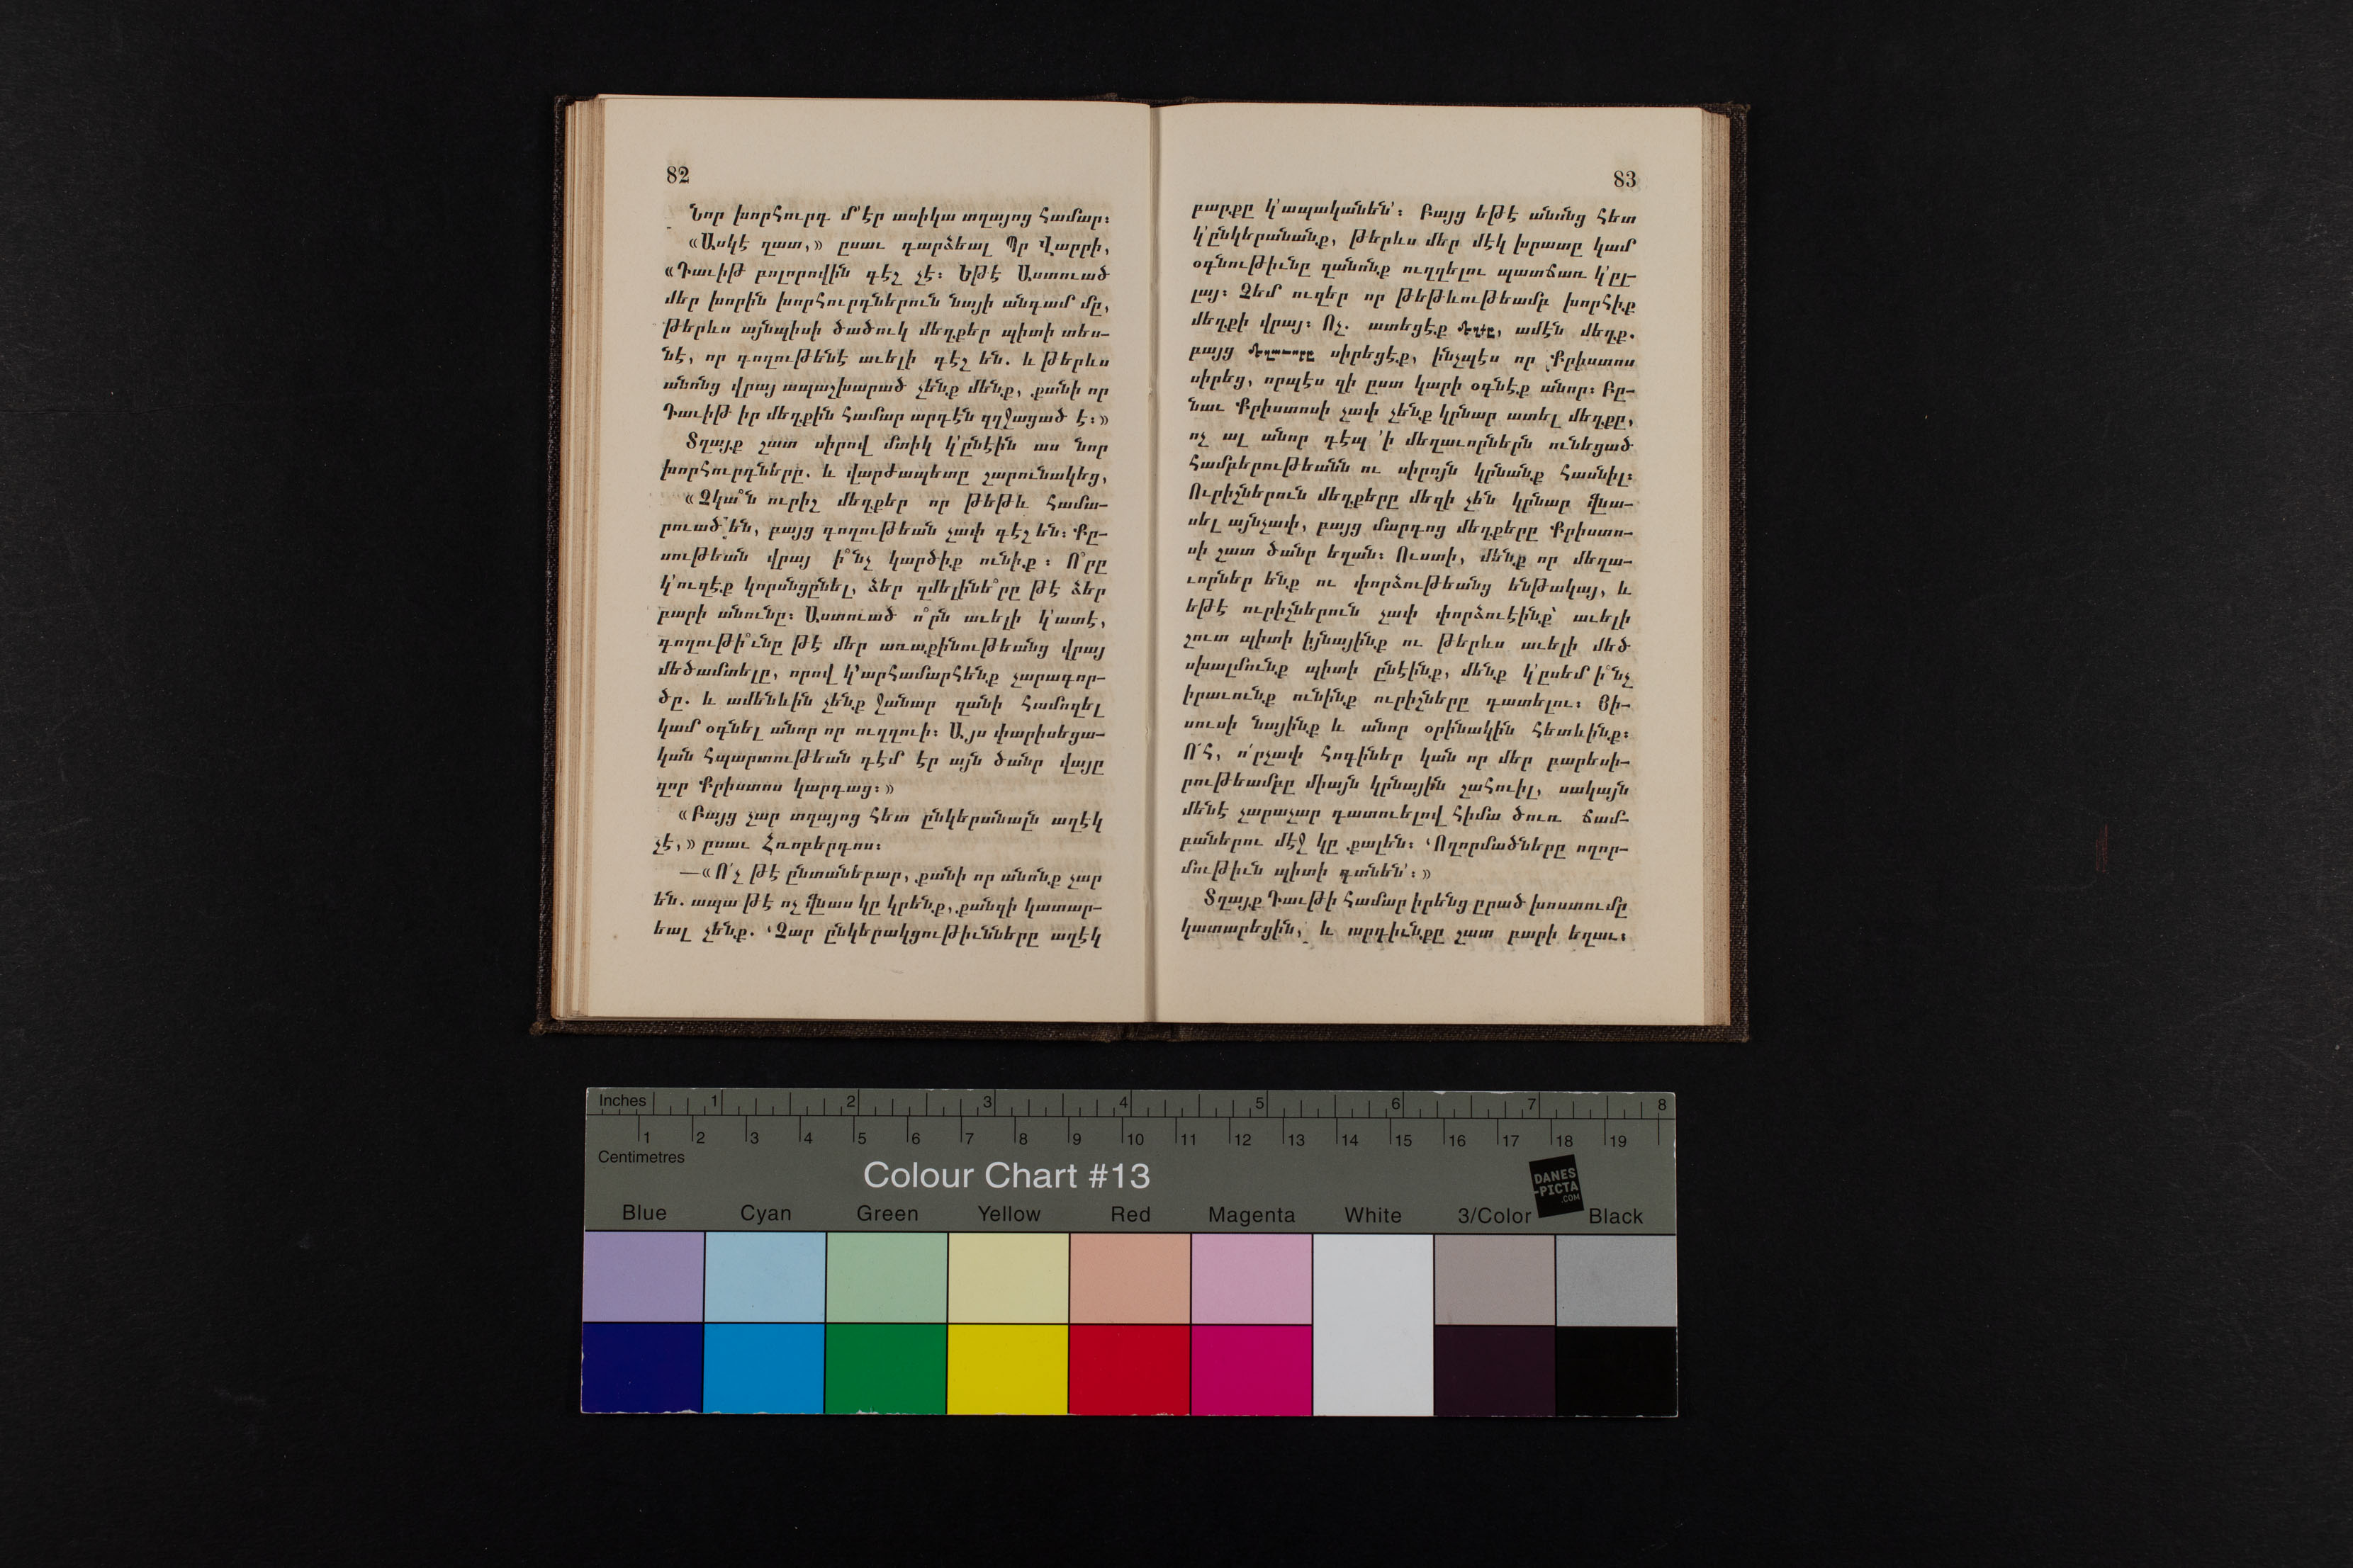 82
Նոր խորհուրդ մ՚էր ասիկա տղայոց համար։
«Ասկէ զատ,» ըսաւ դարձեալ Պր Վարրի,
«Դաւիթ բոլորովին գէշ չէ։ Եթէ Աստուած
մեր խորին խորհուրդներուն նայի անգամ մը,
թերևս այնպիսի ծածուկ մեղքեր պիտի տես-
նէ, որ գողութենէ աւելի գէշ են. և թերևս
անոնց վրայ ապաշխարած չենք մենք, քանի որ
Դաւիթ իր մեղքին համար արդէն զղջացած է։»
Տղայք շատ սիրով մտիկ կ՚ընէին աս նոր
խորհուրդները. և վարժապետը շարունակեց,
«Չկա՞ն ուրիշ մեղքեր որ թեթև համա-
րուած են, բայց գողութեան չափ գէշ են։ Քը-
սութեան վրայ ի՞նչ կարծիք ունիք։ Ո՞րը
կ՚ուզէք կորսնցընել, ձեր զմելինե՞րը թէ ձեր
բարի անունը։ Աստուած ո՞րն աւելի կ՚ատէ,
գողութի՞ւնը թէ մեր առաքինութեանց վրայ
մեծամտելը, որով կ՚արհամարհենք չարագոր-
ծը. և ամենևին չենք ջանար զանի համոզել
կամ օգնել անոր որ ուղղուի։ Այս փարիսեցա-
կան հպարտութեան դէմ էր այն ծանր վայը
զոր Քրիստոս կարդաց։»
«Բայց չար տղայոց հետ ընկերանալն աղէկ
չէ,» ըսաւ Հռոբերդոս։
—«Ո՛չ թէ ընտանեբար, քանի որ անոնք չար
են. ապա թէ ոչ վնաս կը կրենք, քանզի կատար-
եալ չենք. ‘Չար ընկերակցութիւնները աղէկ
83
բարքը կ՚ապականեն՚։ Բայց եթէ անոնց հետ
կ՚ընկերանանք, թերևս մեր մէկ խրատը կամ
օգնութիւնը զանոնք ուղղելու պատճառ կ՚ըլ-
լայ։ Չեմ ուզեր որ թեթևութեամբ խորհիք
մեղքի վրայ։ Ոչ. ատեցէք մեղքը, ամէն մեղք.
բայց մեղաւորը սիրեցէք, ինչպէս որ Քրիստոս
սիրեց, որպէս զի ըստ կարի օգնէք անոր։ Բը-
նաւ Քրիստոսի չափ չենք կրնար ատել մեղքը,
ոչ ալ անոր դէպ ՚ի մեղաւորներն ունեցած
համբերութեանն ու սիրոյն կրնանք հասնիլ։
Ուրիշներուն մեղքերը մեզի չեն կրնար վնա-
սել այնչափ, բայց մարդոց մեղքերը Քրիստո-
սի շատ ծանր եղան։ Ուստի, մենք որ մեղա-
ւորներ ենք ու փորձութեանց ենթակայ, և
եթէ ուրիշներուն չափ փորձուէինք՝ աւելի
շուտ պիտի իյնայինք ու թերևս աւելի մեծ
սխալմունք պիտի ընէինք, մենք կ՚ըսեմ ի՞նչ
իրաւունք ունինք ուրիշները դատելու։ Յի-
սուսի նայինք և անոր օրինակին հետևինք։
Ո՜հ, ո՛րչափ հոգիներ կան որ մեր բարեսի-
րութեամբը միայն կրնային շահուիլ, սակայն
մենէ չարաչար դատուելով հիմա ծուռ ճամ-
բաներու մէջ կը քալեն։ ‘Ողորմածները ողոր-
մութիւն պիտի գտնեն՚։»
Տղայք Դաւթի համար իրենց ըրած խոստումը
կատարեցին, և արդիւնքը շատ բարի եղաւ։
Inches 1 2 3 4 5 6 7 8
1 2 3 4 5 6 7 8 9 10 11 12 13 14 15 16 17 18 19
Centimetres
Colour Chart #13
DANES
-PICTA
.COM
Blue Cyan Green Yellow Red Magenta White 3/Color Black